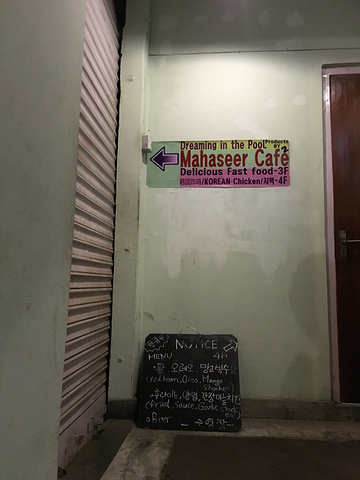 Dreaming in the Pool Products
Mahaseer Café
Delicious Fast food-3F
韩国炸鸡/KOREAN Chicken/치맥-4F
NOTICE
MENU 4F
팥, 오레오, 망고빙수
(red bean, Oreo, Mango
후라이드, 양념, 간장마늘치킨
(fried, sauce, Garlic
수영장